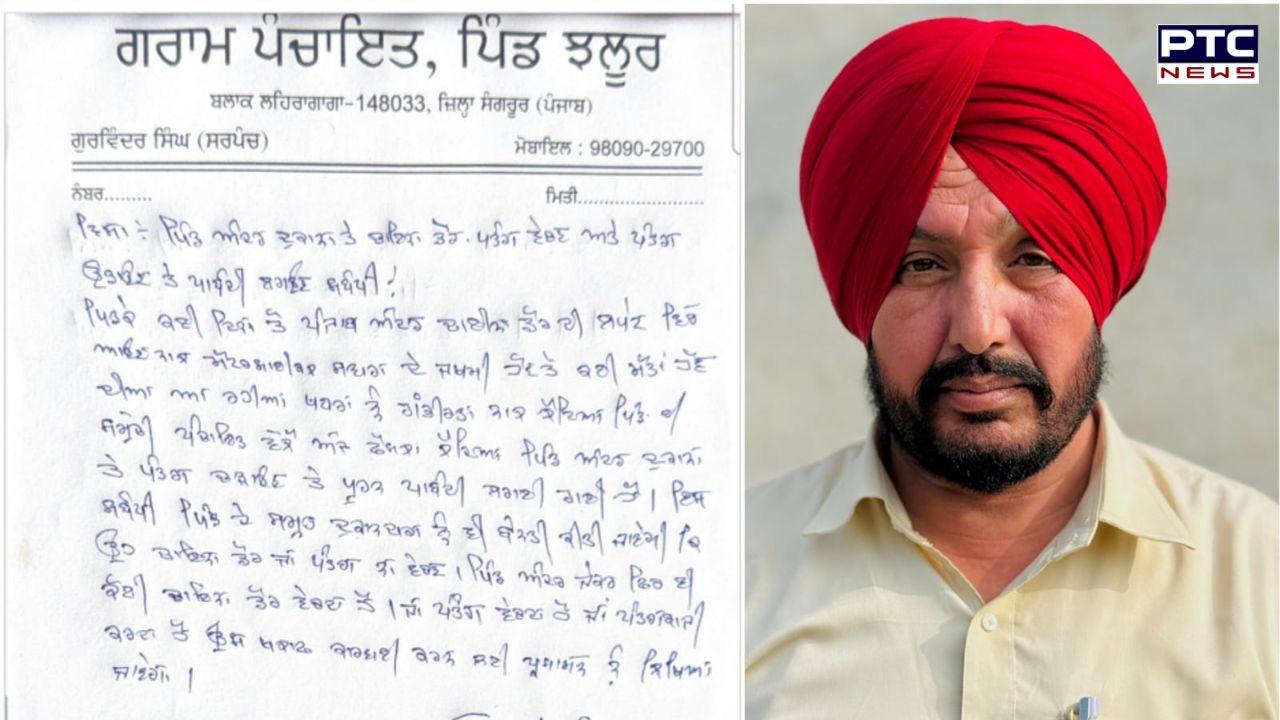 ਗਰਾਮ ਪੰਚਾਇਤ, ਪਿੰਡ ਝਲੂਰ
ਬਲਾਕ ਲਹਿਰਾਗਾਗਾ-148033, ਜ਼ਿਲ੍ਹਾ ਸੰਗਰੂਰ (ਪੰਜਾਬ)
ਗੁਰਵਿੰਦਰ ਸਿੰਘ (ਸਰਪੰਚ) ਮੋਬਾਇਲ : 98090-29700
ਨੰਬਰ......... ਮਿਤੀ........................
ਵਿਸ਼ਾ : ਪਿੰਡ ਅੰਦਰ ਦੁਕਾਨਾਂ ਤੇ ਚਾਇਨਾ ਡੋਰ, ਪਤੰਗ ਵੇਚਣ ਅਤੇ ਪਤੰਗ
ਉਡਾਉਣ ਤੇ ਪਾਬੰਦੀ ਲਗਾਉਣ ਸਬੰਧੀ !
ਪਿਛਲੇ ਕਈ ਦਿਨਾਂ ਤੋਂ ਪੰਜਾਬ ਅੰਦਰ ਚਾਈਨਾ ਡੋਰ ਦੀ ਲਪੇਟ ਵਿੱਚ
ਆਉਣ ਨਾਲ ਮੋਟਰਸਾਈਕਲ ਸਵਾਰਾਂ ਦੇ ਜਖਮੀ ਹੋਣ ਤੇ ਕਈ ਮੌਤਾਂ ਹੋਣ
ਦੀਆਂ ਆ ਰਹੀਆਂ ਖਬਰਾਂ ਨੂੰ ਗੰਭੀਰਤਾ ਨਾਲ ਲੈਂਦਿਆਂ ਪਿੰਡ ਦੀ
ਸਮੂਚੀ ਪੰਚਾਇਤ ਵੱਲੋਂ ਅੱਜ ਫੈਸਲਾ ਲੈਂਦਿਆਂ ਪਿੰਡ ਅੰਦਰ ਦੁਕਾਨਾਂ
ਤੇ ਪਤੰਗ ਚੜਾਉਣ ਤੇ ਪੂਰਨ ਪਾਬੰਦੀ ਲਗਾਈ ਗਈ ਹੈ। ਇਸ
ਸਬੰਧੀ ਪਿੰਡ ਦੇ ਸਮੂਹ ਦੁਕਾਨਦਾਰਾਂ ਨੂੰ ਵੀ ਬੇਨਤੀ ਕੀਤੀ ਜਾਂਦੀ ਕਿ
ਉਹ ਚਾਇਨਾ ਡੋਰ ਜਾਂ ਪਤੰਗ ਨਾ ਵੇਚਣ। ਪਿੰਡ ਅੰਦਰ ਜੇਕਰ ਫਿਰ ਵੀ
ਕੋਈ ਚਾਇਨਾ ਡੋਰ ਵੇਚਦਾ ਹੈ। ਜਾਂ ਪਤੰਗ ਵੇਚਦਾ ਹੈ ਜਾਂ ਪਤੰਗਬਾਜੀ
ਕਰਦਾ ਹੈ ਉਸ ਖਿਲਾਫ ਕਾਰਵਾਈ ਕਰਨ ਲਈ ਪ੍ਰਸ਼ਾਸਨ ਨੂੰ ਲਿਖਿਆ
ਜਾਵੇਗਾ।
PTC
NEWS